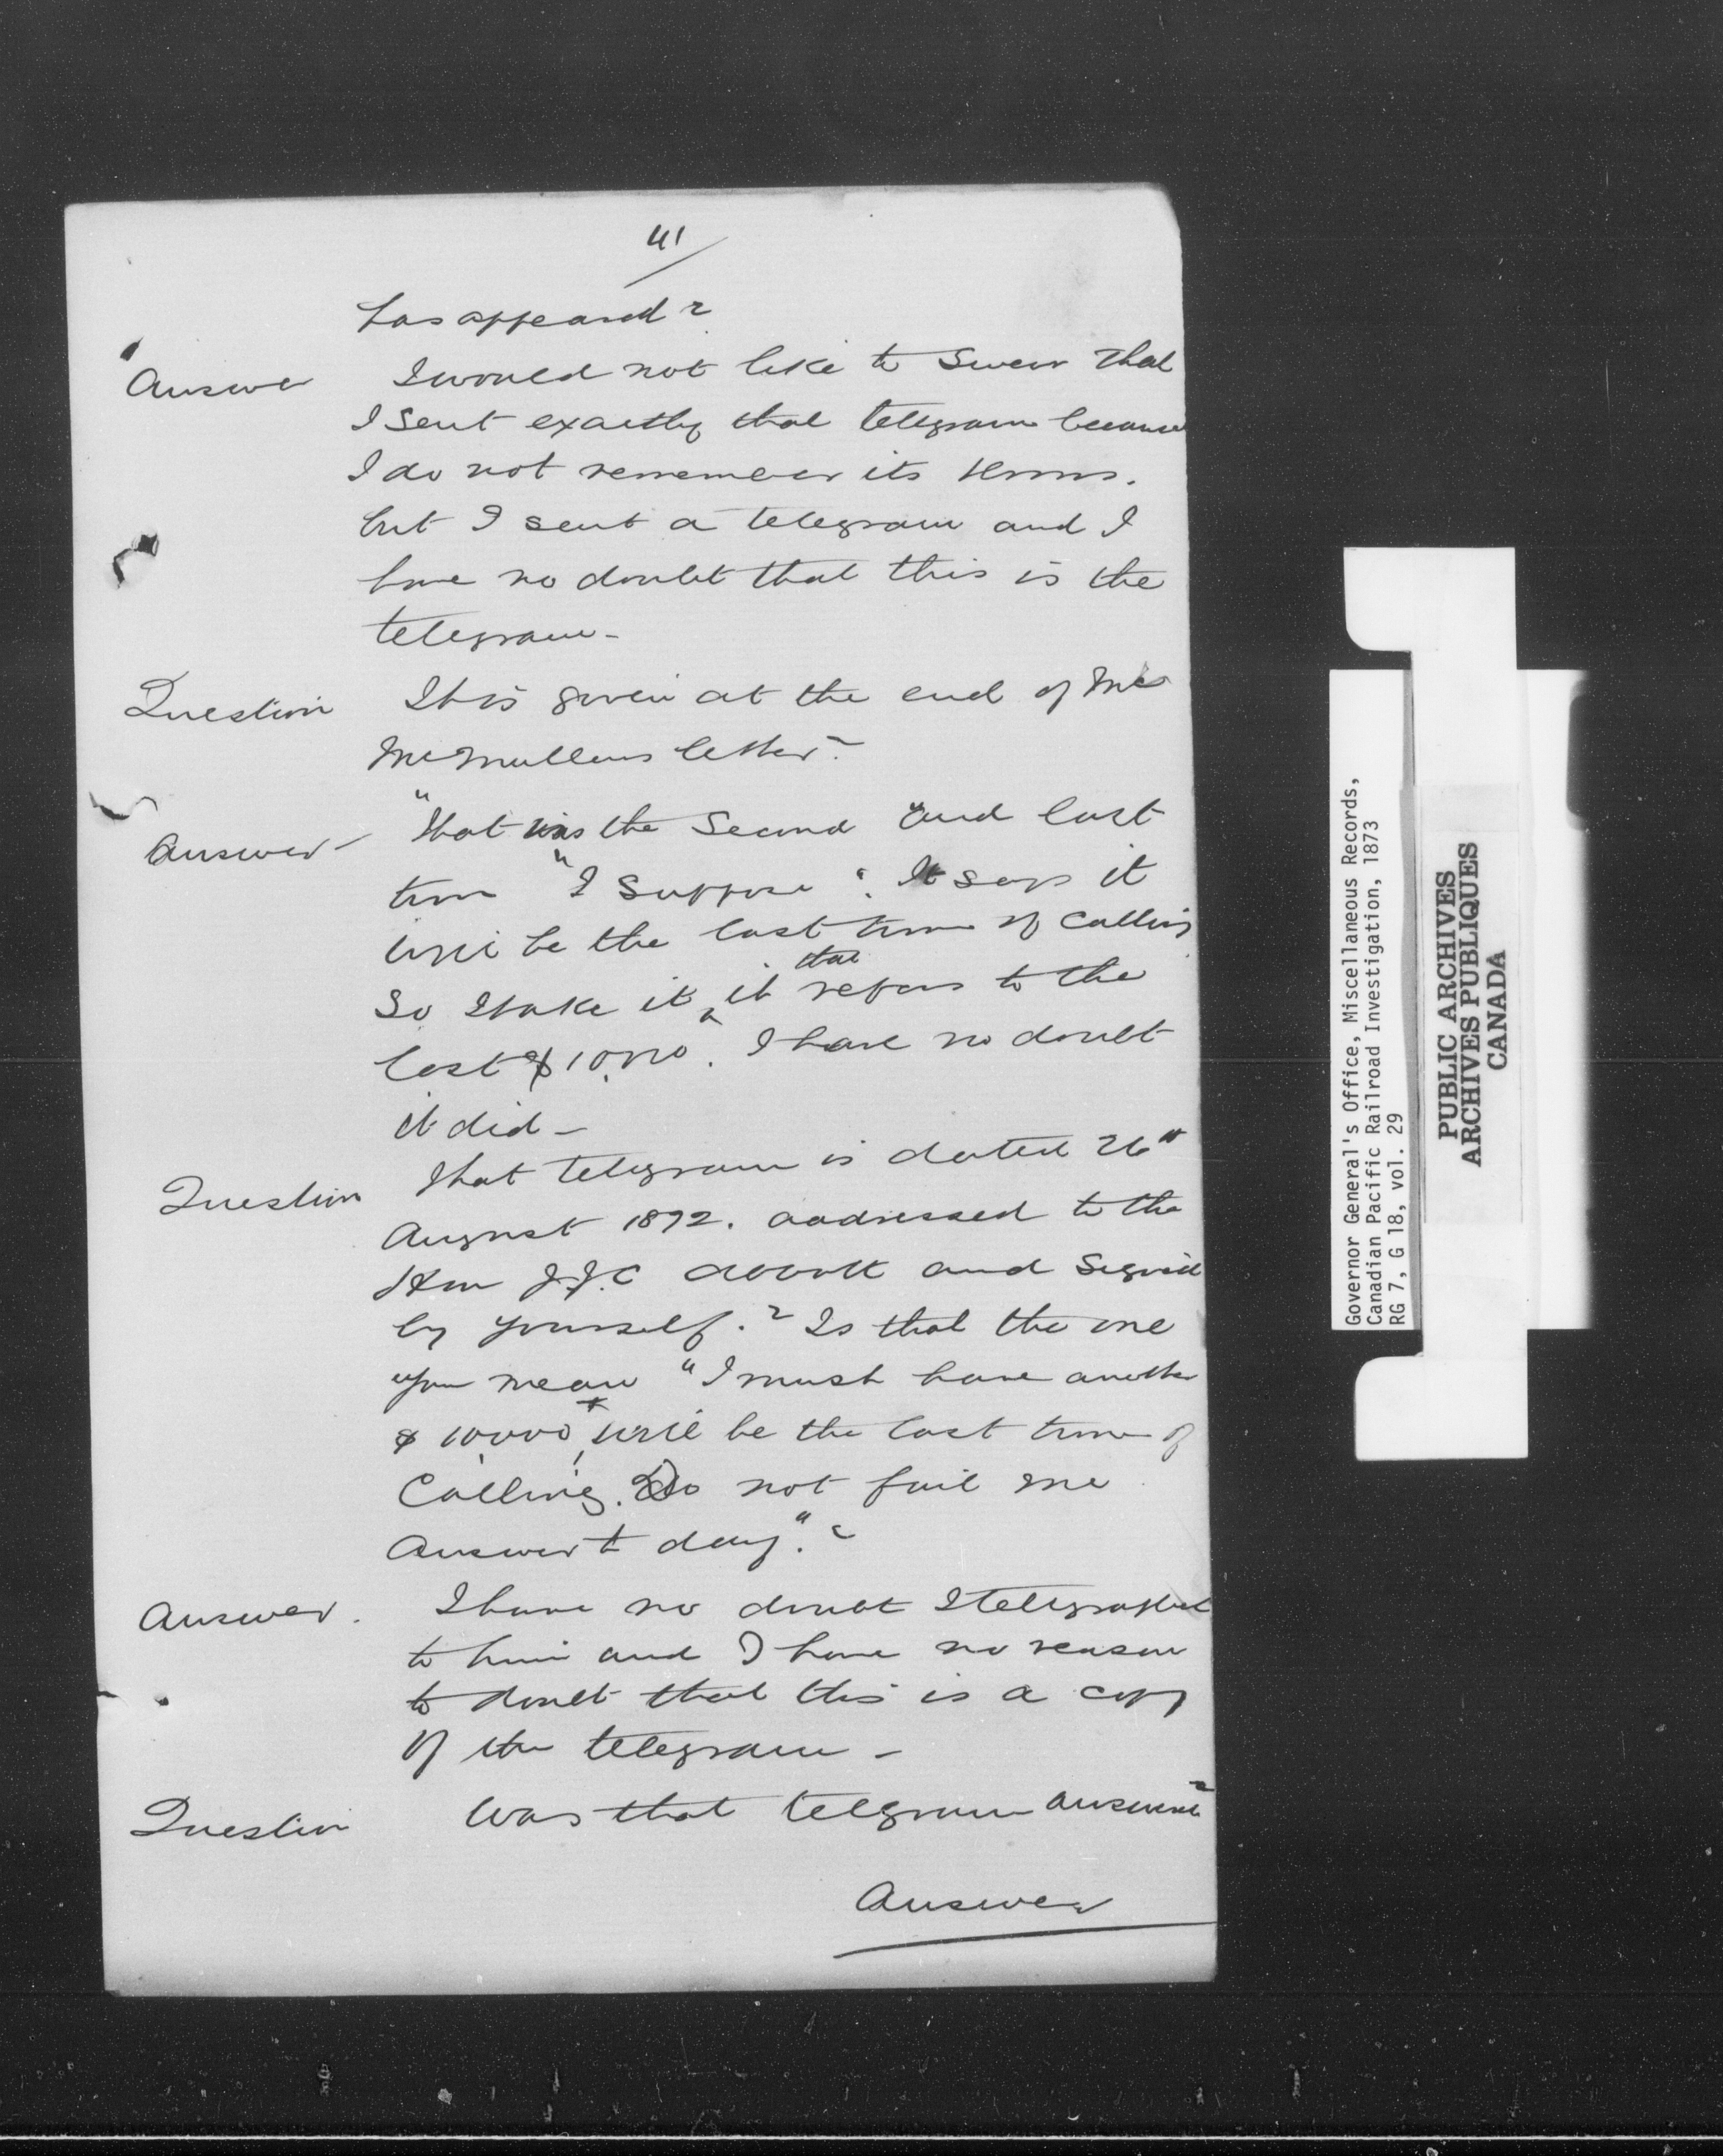 41
has appeared?
Answer I would not like to swear that
I sent exactly that telegram because
I do not remember its terms.
but I sent a telegram and I
have no doubt that this is the
telegram -
Question It is given at the end of Mr
McMullens letter?
Answer - "That was the second and last
time "I suppose". It says it
will be the last time of calling
So I take it that it refers to the
last $10,000. I have no doubt
it did -
Question That telegram is dated 26th
August 1872. addressed to the
Hon J.J.C Abbott and signed
by yourself.? Is that the one
you mean "I must have another
$10,000, will be the last time of
Calling. Do not fail me
answer to day."?
Answer. I have no doubt I telegraphed
to him and I have no reason
to doubt that this is a copy
of the telegram -
Question Was that telgram answered?
Answer
Governor General's Office, Miscellaneous Records,
Canadian Pacific Railroad Investigation, 1873
RG 7, G 18, vol. 29
PUBLIC ARCHIVES
ARCHIVES PUBLIQUES
CANADA